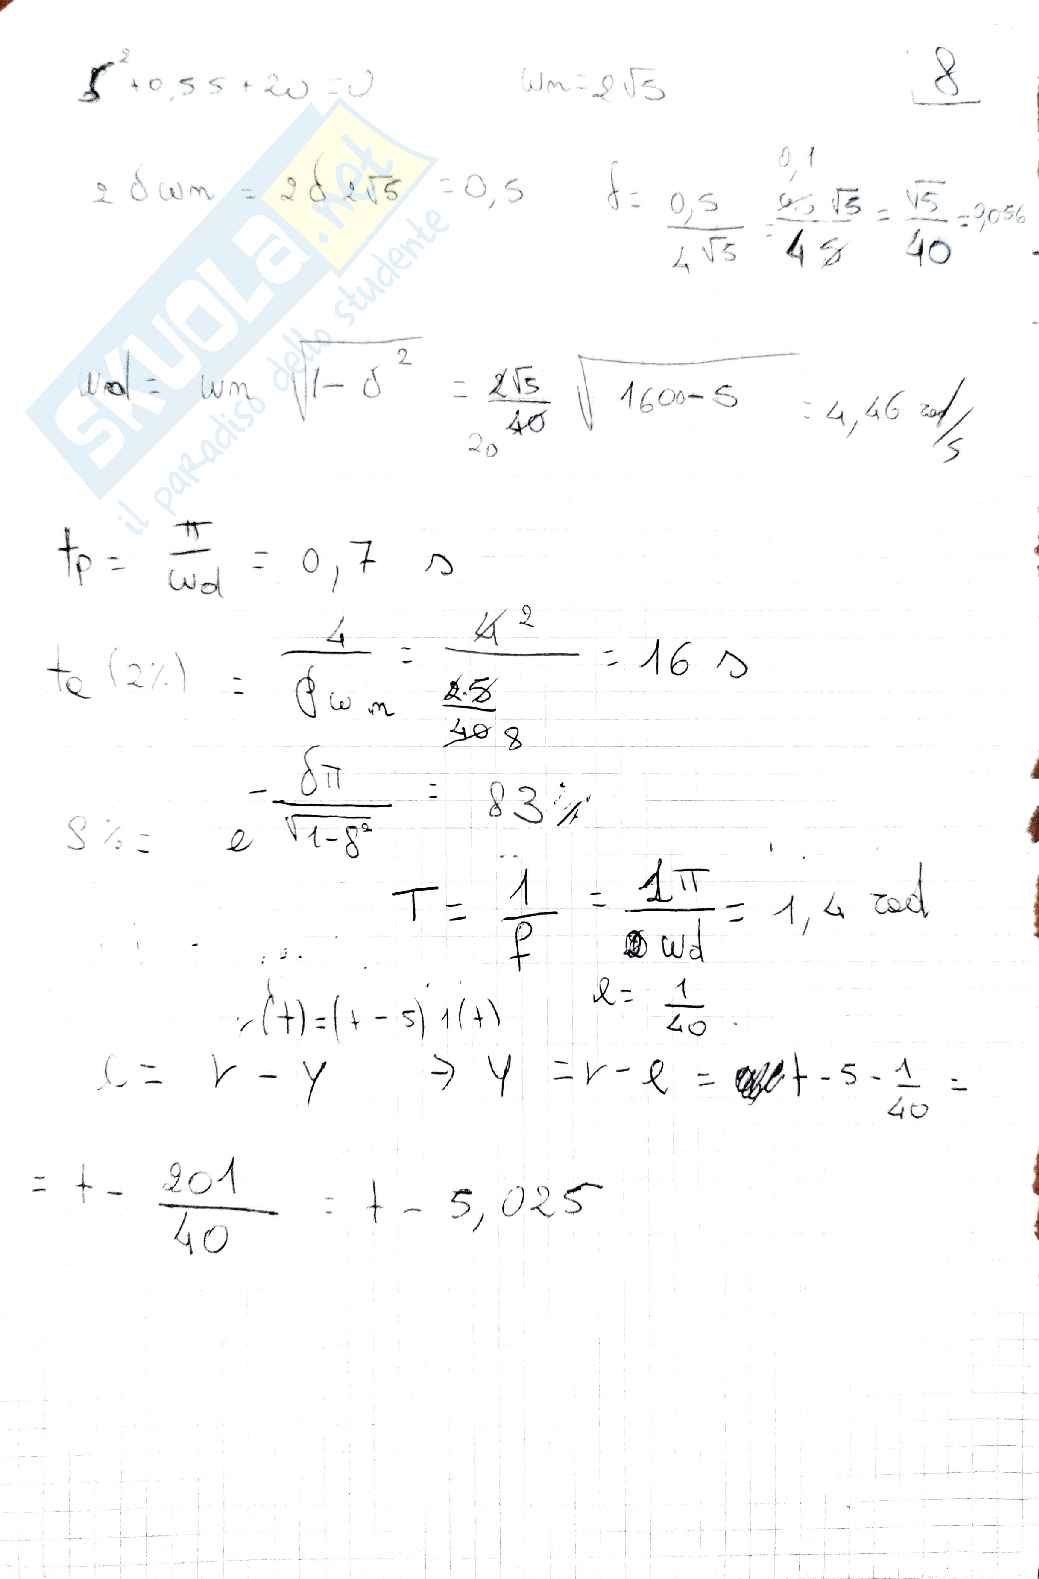 s² + 0,5s + 20 = 0    ωn = 2√5    8
2δωn = 2δ2√5 = 0,5    δ = 0,5/(4√5) = 0,1√5/4 = √5/40 = 0,056
ωd = ωn √(1-δ²) = 2√5/40 √(1600-5) = 4,46 rad/s
20
tp = π/ωd = 0,7 s
ta (2%) = 4/(δωn) = 4/(2·5/40) = 16 s
S% = e^(-δπ/√(1-δ²)) = 83%
T = 1/f = 2π/ωd = 1,4 rad
r(t) = (t-5) 1(t)    e = 1/40
e = r - y ⇒ y = r - e = t - 5 - 1/40 =
= t - 201/40 = t - 5,025
SKUOLA.net
il paradiso dello studente